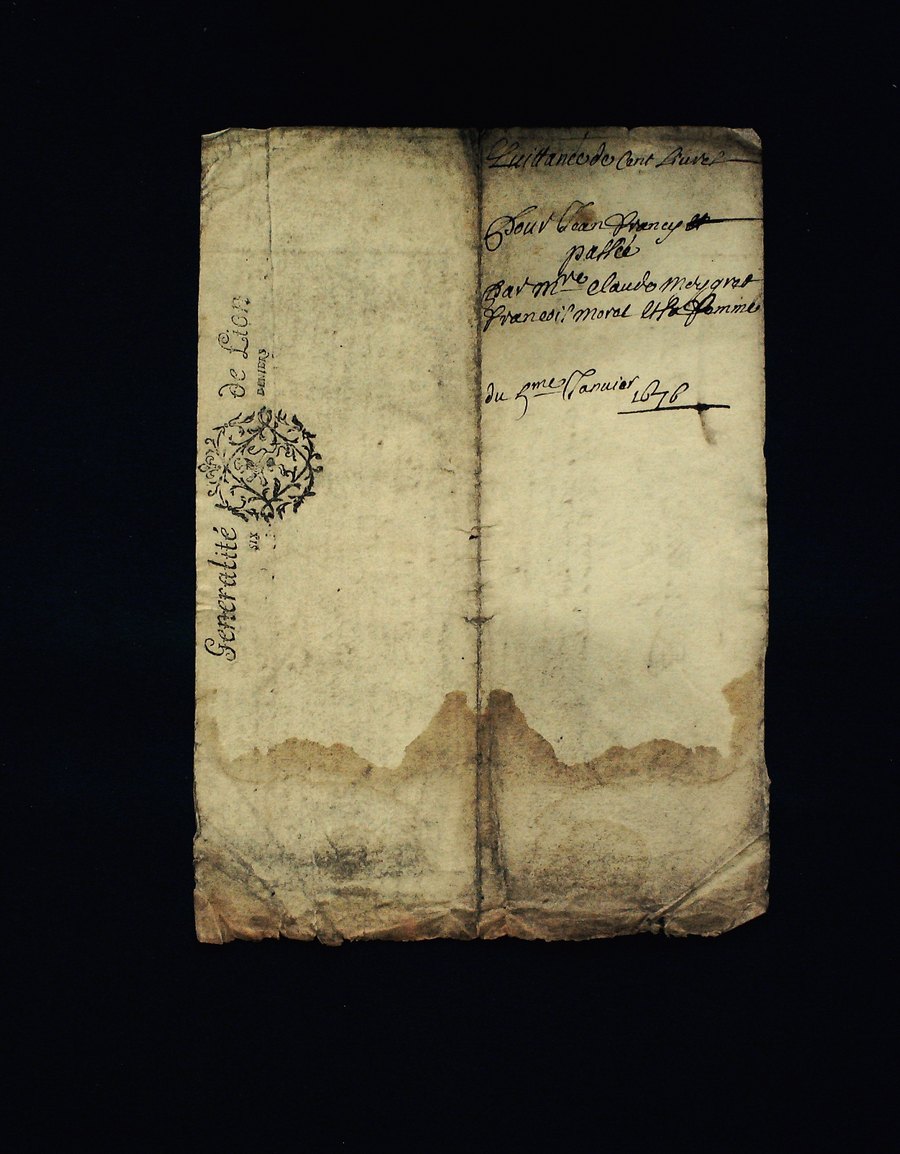 Generalité de Lion
SIX DENIERS
Quittance de Cent Livres
Pour Jean françois
passée
par mre Claude Meygret
françois morel et sa femme
du 5me Janvier 1676